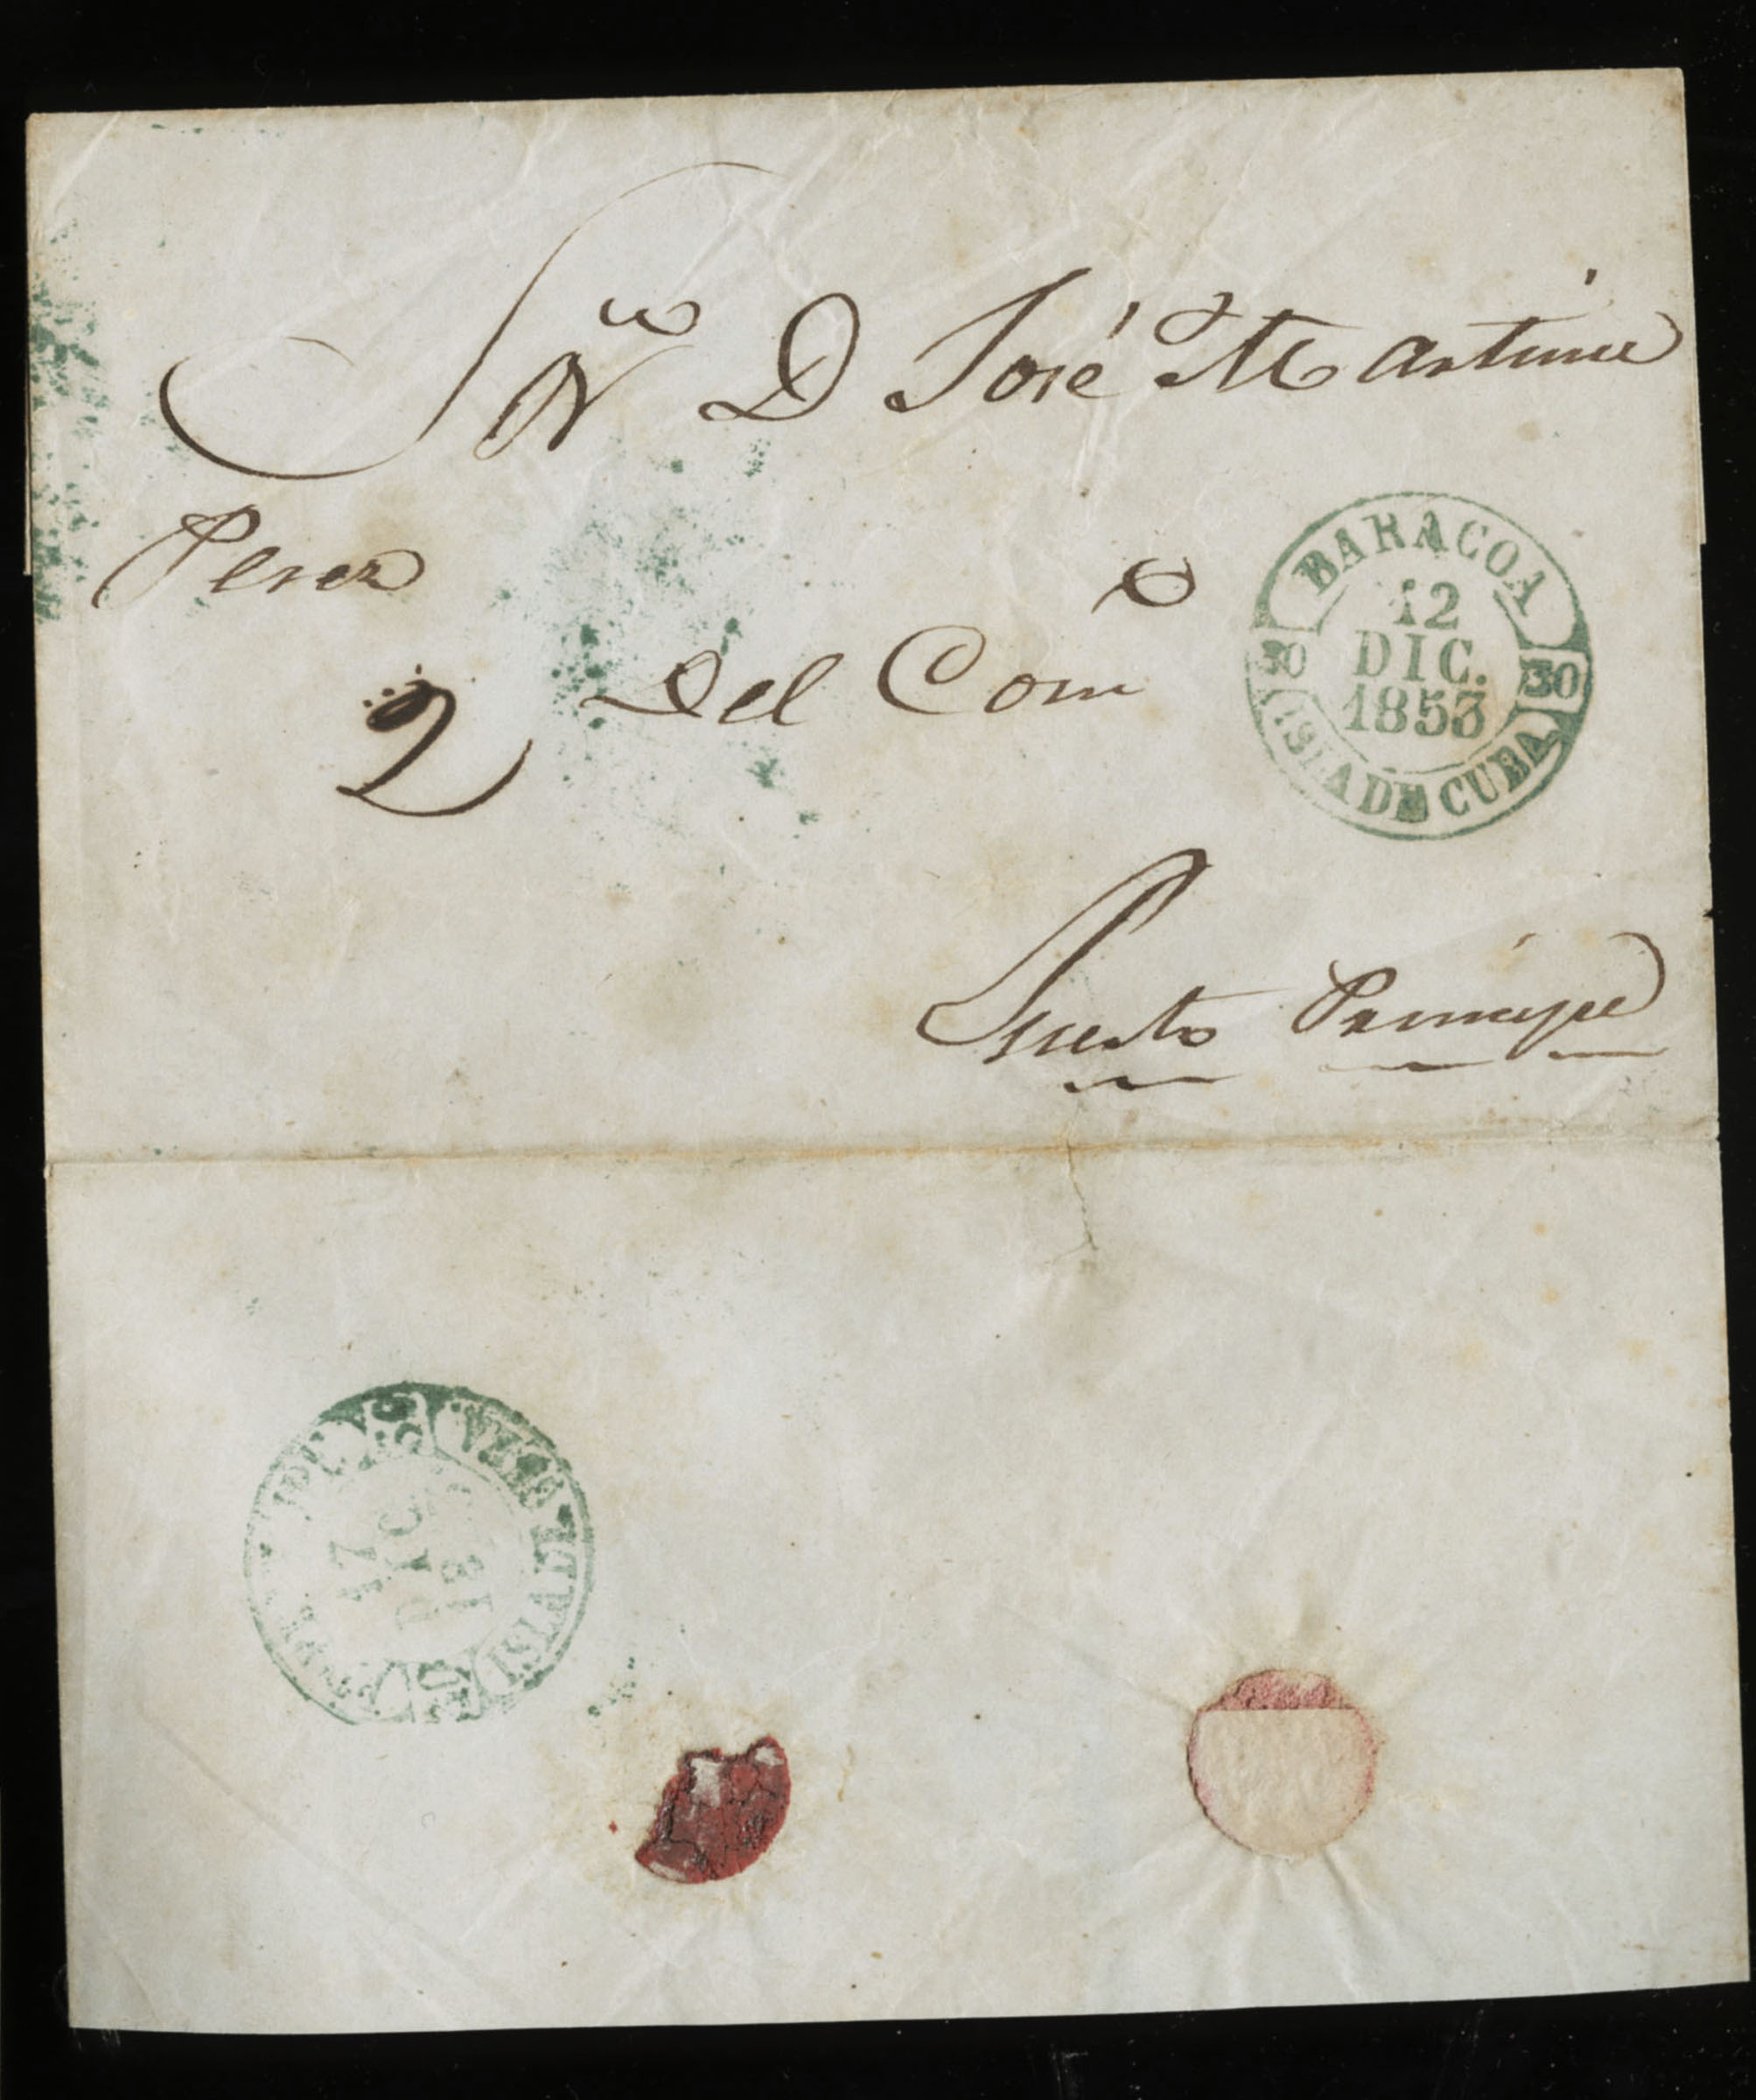 Sor Dn D José Martinez
Perez
Del Como
2
BARACOA
12
DIC.
1853
30 30
ISLA DE CUBA
Puerto Principe
17
DIC
18
ISLA DE CUBA